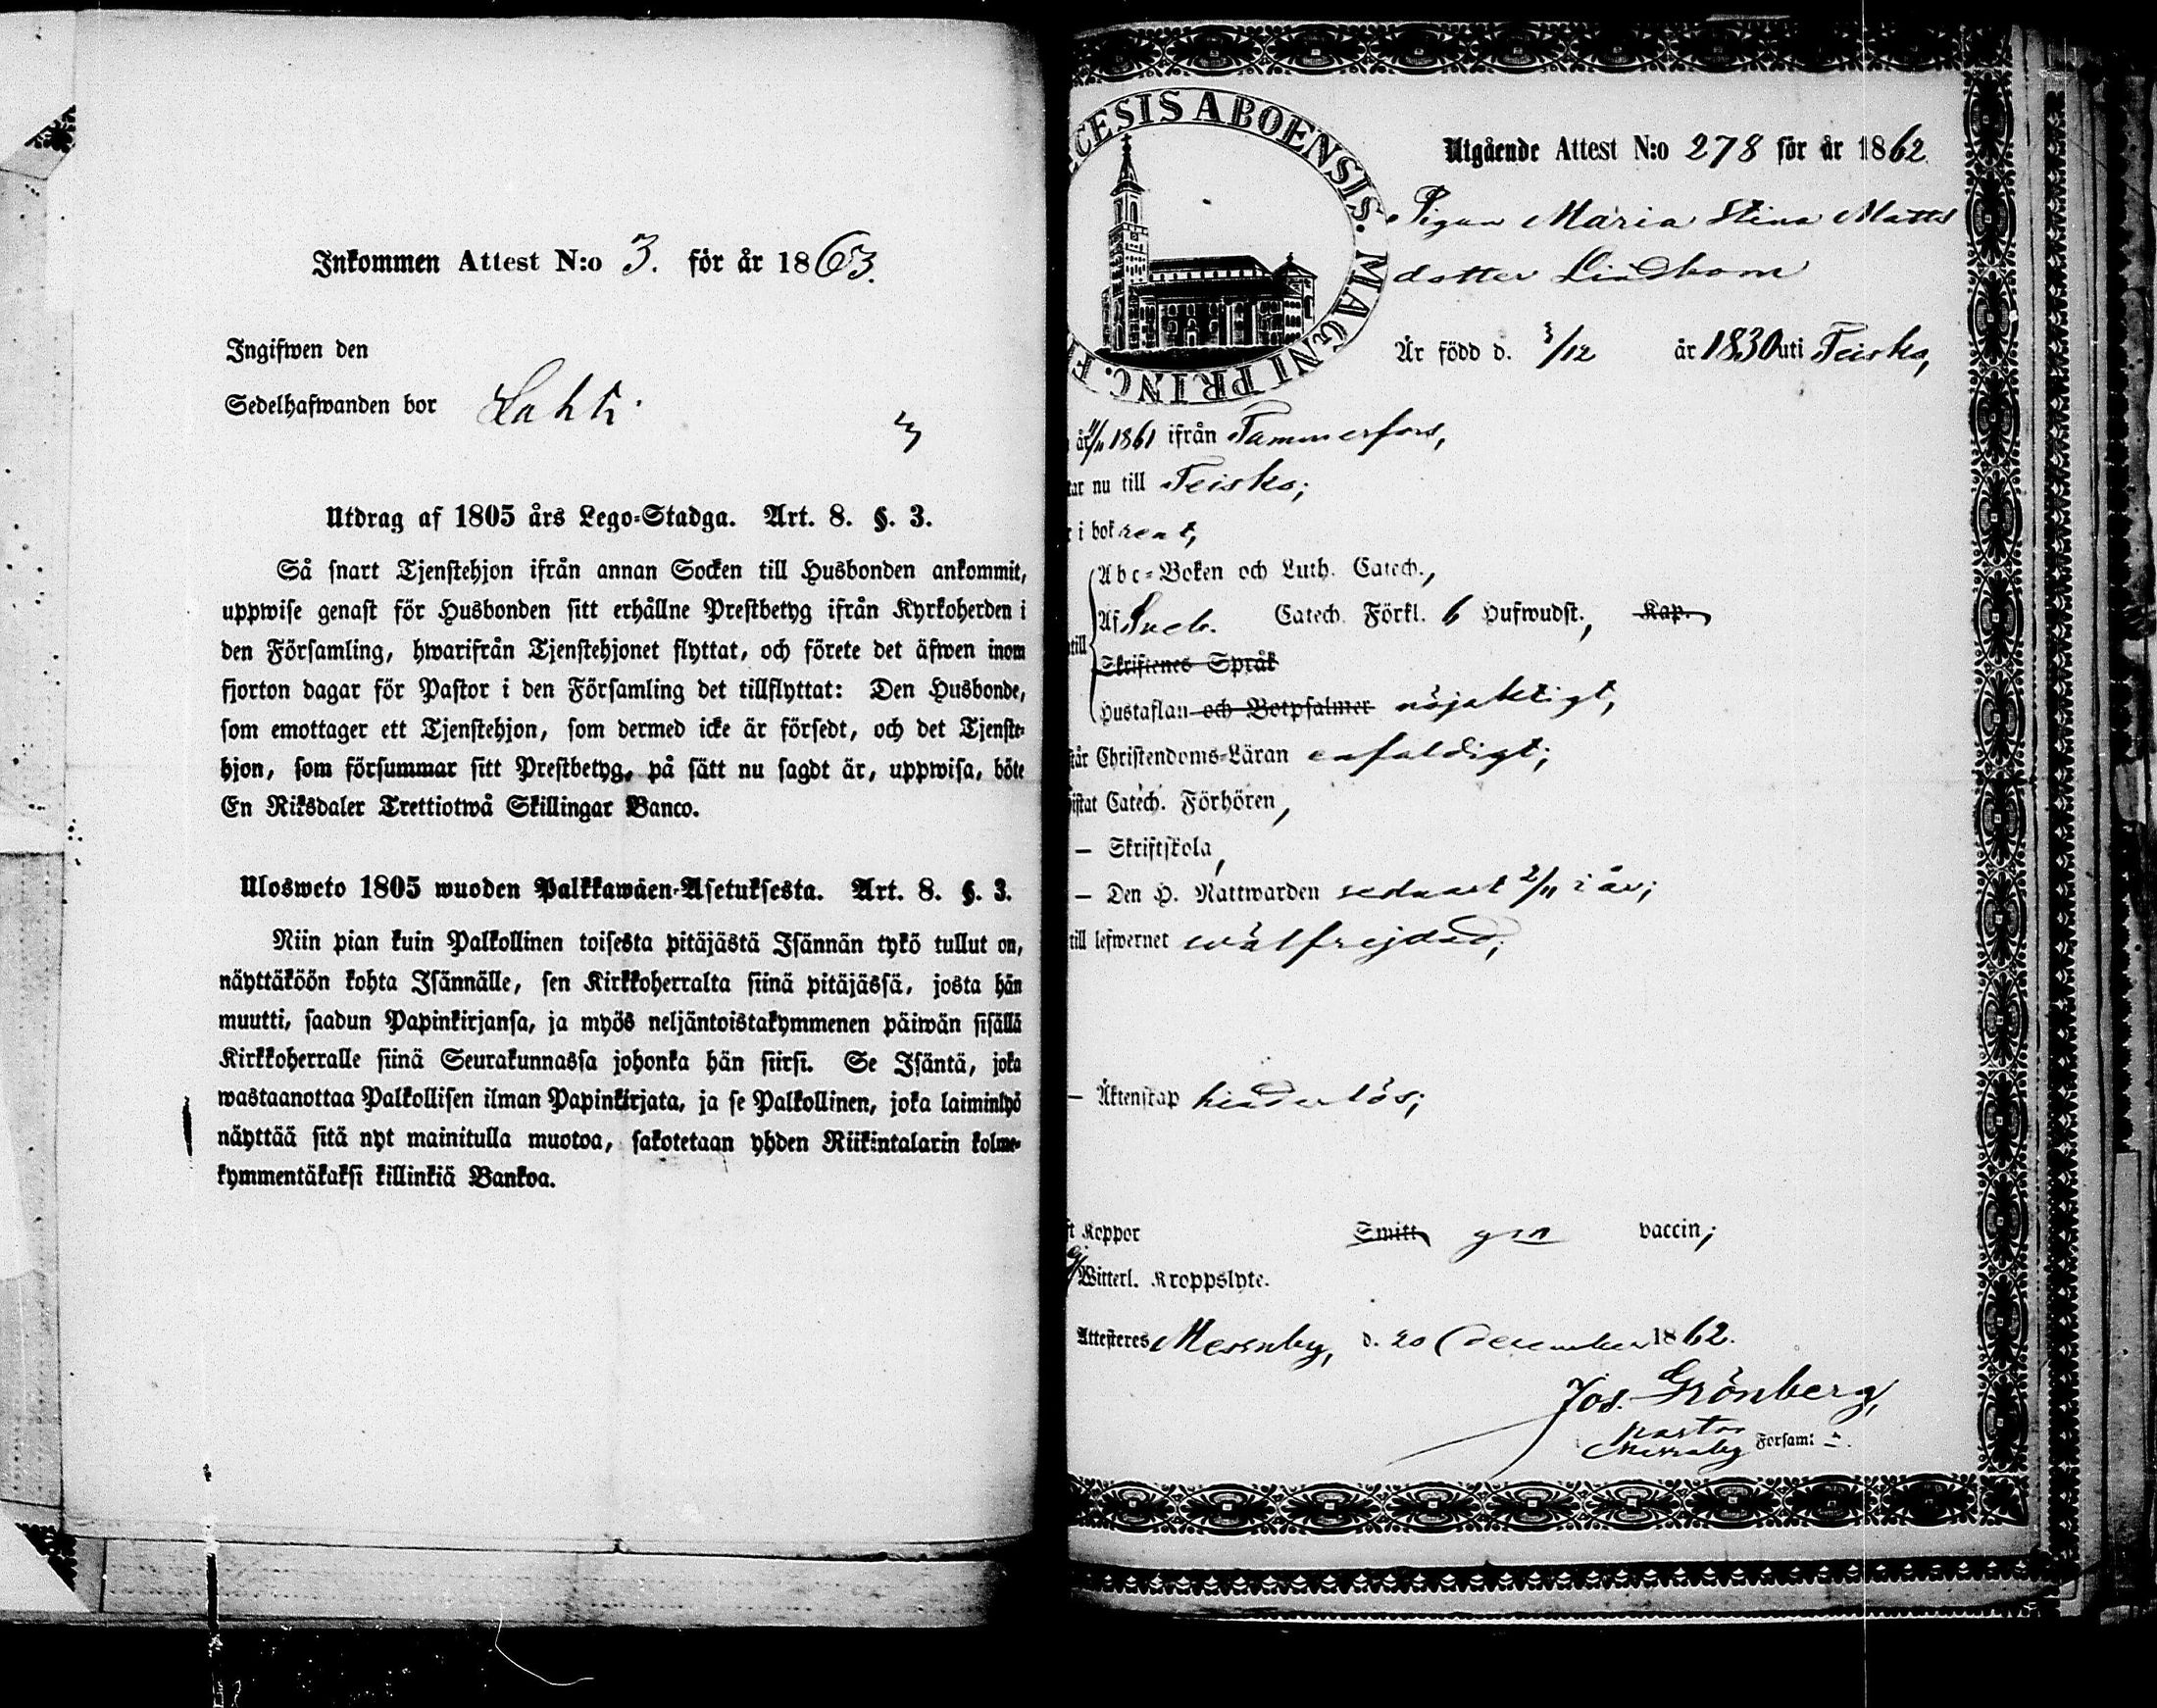 Inkommen Attest N:o 3. för år 1863.
Ingifwen den
Sedelhafwanden bor Lahti.
3
Utdrag af 1805 års Lego-Stadga. Art. 8. §. 3.
Så snart Tjenstehjon ifrån annan Socken till Husbonden ankommit,
uppwise genast för Husbonden sitt erhållne Prestbetyg ifrån Kyrkoherden i
den Församling, hwarifrån Tjenstehjonet flyttat, och förete det äfwen inom
fjorton dagar för Pastor i den Församling det tillflyttat: Den Husbonde,
som emottager ett Tjenstehjon, som dermed icke är försedt, och det Tjenste-
hjon, som försummar sitt Prestbetyg, på sätt nu sagdt är, uppwisa, böte
En Riksdaler Trettiotwå Skillingar Banco.
Ulosweto 1805 wuoden Palkkawäen-Asetuksesta. Art. 8. §. 3.
Niin pian kuin Palkollinen toisesta pitäjästä Isännän tykö tullut on,
näyttäköön kohta Isännälle, sen Kirkkoherralta siinä pitäjässä, josta hän
muutti, saadun Papinkirjansa, ja myös neljäntoistakymmenen päiwän sisällä
Kirkkoherralle siinä Seurakunnassa johonka hän siirsi. Se Isäntä, joka
wastaanottaa Palkollisen ilman Papinkirjata, ja se Palkollinen, joka laiminlyö
näyttää sitä nyt mainitulla muotoa, sakotetaan yhden Riikintalarin kolme-
kymmentäkaksi killinkiä Bankoa.
CESIS ABOENSIS. MAGNI PRINC. F
Utgående Attest N:o 278 för år 1862
Pigan Maria Stina Matts
dotter Lindhom
Är född d. 3/12 år 1830 uti Teisko,
år 1861 ifrån Tammerfors,
tar nu till Teisko;
r i bok rent,
Abc-Boken och Luth. Catech.,
Af Sveb. Catech. Förkl. 6 Hufwudst., Kap.
till
Skriftenes Språk
Hustaflan och Botpsalmer nöjaktigt,
står Christendoms-Läran enfaldigt;
istat Catech. Förhören,
— Skriftskola,
— Den H. Nattwarden sednast 2/11 i år;
till lefwernet wälfrejdad;
— Äktenskap hinderlös;
ft Koppor Smitt gm vaccin;
ej Witterl. Kroppslyte.
Attesteres Messuby, d. 20 December 1862.
Jos. Grönberg,
Pastor
Messuby Forsaml: